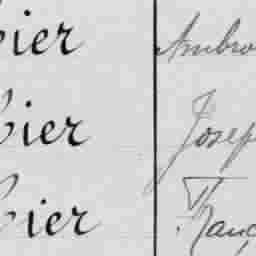 ier Ambro
ier Josep
ier Franç